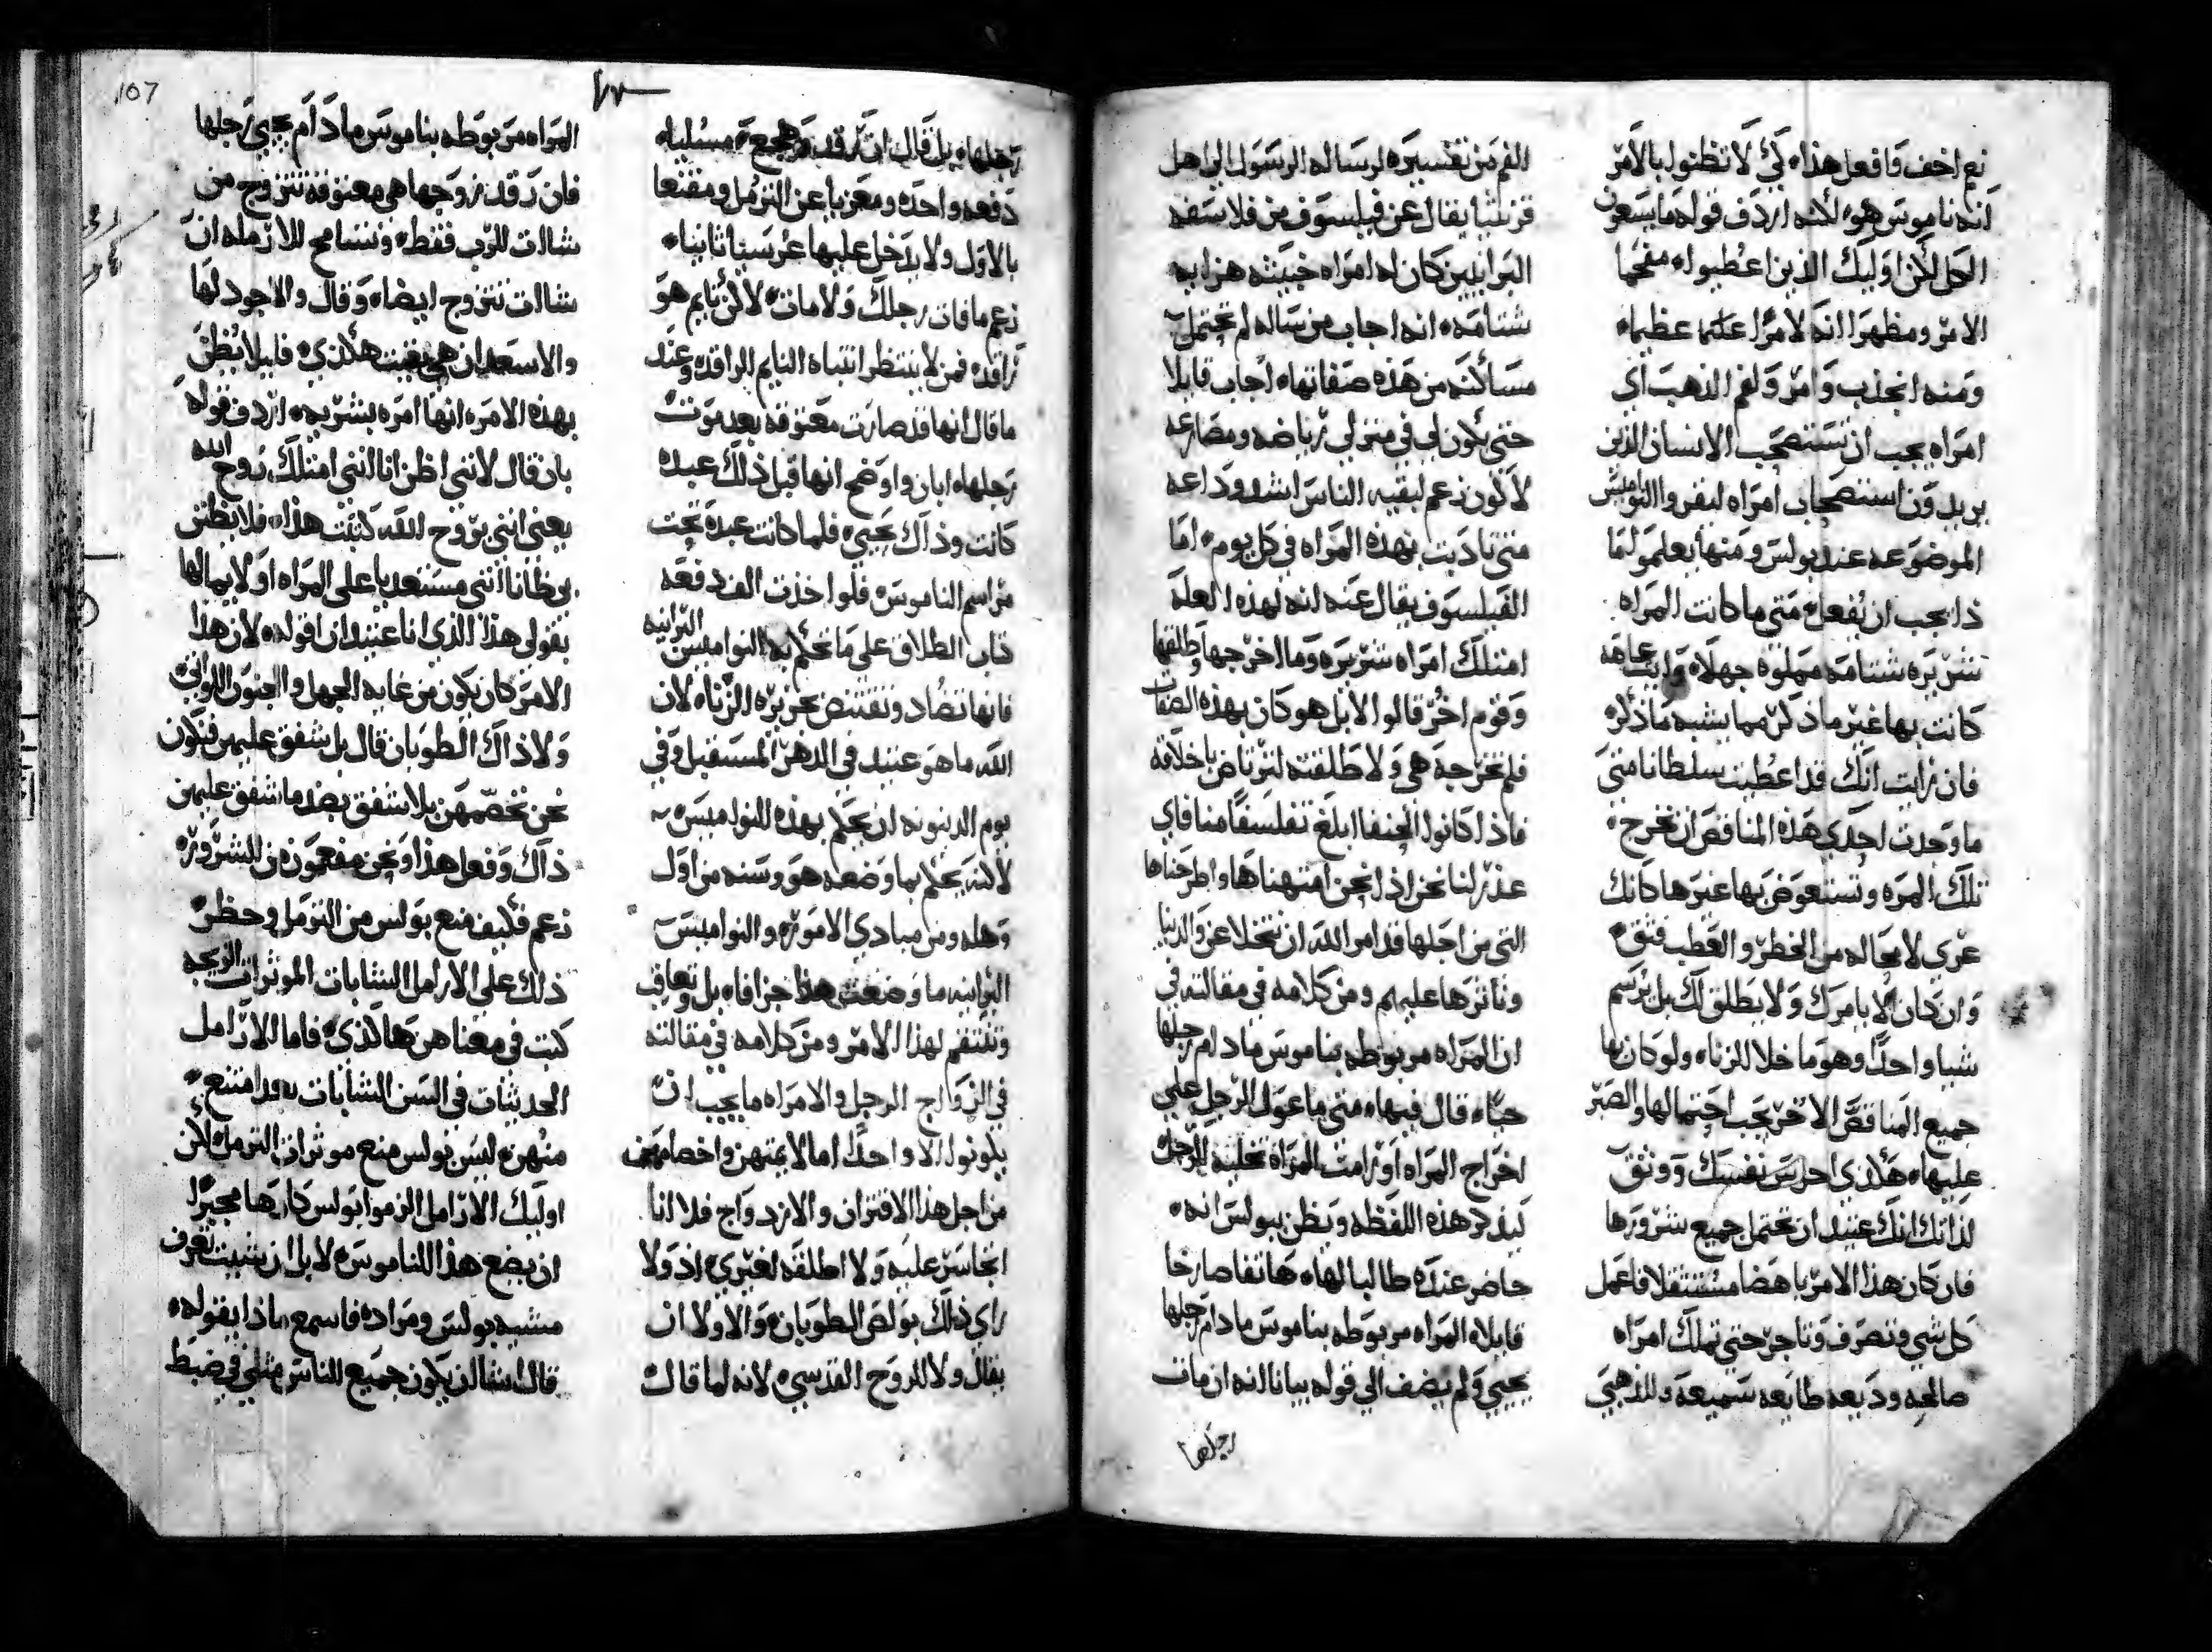 نعم اخف وافعل هذا لكي لا تظنوا بالامر
انه ناموس هو لانه اردف قوله ما يسعون
الكل لكن اوليك الذين اعطيوا مفخما
الامر ومظهرا انه لامرا عظيما
ومنه انجذب وامر ولفم الذهب اي
امراه يجب ان تستصحب الانسان الذين
يريدون استصحاب امراه ليقروا النواميس
الموضوعه عند بولس ومنها يعلموا لما
ذا يجب ان يفعل متي ما كانت المراه
شريره شتامه مملوه جهلا
كانت بها غير ما ذكر مما يشبه ما ذكر
فان رايت انك قد اعطيت سلطانا متي
ما وجدت احدي هذه المناقص ان تخرج
تلك المره وتستعوض بها غيرها كانك
عري لا محاله من الخطر والعطب فثق
وان كان لا يامرك ولا يطلق لك بل يرسم
شيا واحدا وهو ما خلا الزنا ولو كان بها
جميع المناقص الاخر يجب احتمالها والصبر
عليها هكذي احرس نفسك ووثق
لذاتك انك عتيد ان تحتمل جميع شرورها
فان كان هذا الامر باهضا مستثقلا فاعمل
كل شي وتصرف وتاجر حتي تملك امراه
صالحه وديعه طايعه سميعه وللذهبي
الفم من تفسيره لرساله الرسول الي اهل
قرنثيا يقال عن فيلسوف من فلاسفه
البرانيين كان له امراه خبيثه هزايه
شتامه انه اجاب من ساله لم تحتمل
مساكنه من هذه صفاتها اجاب قايلا
حتي يكون لي في منزلي رياضه ومصارعه
لاكون زعم لبقيه الناس اشد وداعه
متي تادبت بهذه المراه في كل يوم اما
الفيلسوف يقال عنه انه لهذه العله
امتلك امراه شريره وما اخرجها وطلقها
وقوم اخر قالوا لا بل هو كان بهذه الصفات
فلم تخرجه هي ولا طلقته لترتاض باخلاقه
فاذا كانوا الحنفا ابلغ تفلسفا منا فاي
عذر لنا نحن اذا نحن امتهناها واطرحناها
التي من اجلها قد امر الله ان نتخلا عن والدينا
ونوثرها عليهم ومن كلامه في مقالته في
ان المراه مربوطه بناموس مادام رجلها
حيا قال فيها متي ما عول الرجل علي
اخراج المراه او رامت المراه تخليه الرجل
ليذكر هذه اللفظه ويظن ببولس انه
حاضر عنده طالبا لها هاتفا صارخا
قايلا المراه مربوطه بناموس مادام رجلها
يحيي ولم يضف الي قوله بيانا انه ان مات
رجلها
رجلها بل قال ان رقد وهجع مسليا
دفعه واحده ومعزيا عن الترمل ومقنعا
بالاول ولا يدخل عليها عريسا ثانيا
زعم ما فات رجلك ولا مات لاكن نايم هو
راقد فمن لا ينتظر انتباه النايم الراقد وعند
ما قال انها قد صارت معتوقه بعد موت
رجلها ابان واوضح انها قبل ذلك عبده
كانت وذاك يحيي فلما كانت عبده تحت
مراسم الناموس فلو اخذت الف دفعه
كتاب الطلاق علي ما تحكم به النواميس البرانيه
فانها تصاد وتقتنص بجريره الزنا لان
الله ما هو عتيد في الدهر المستقبل وفي
يوم الدينونه ان يحكم بهذه النواميس
لاكنه يحكم بما وضعه هو وسنه من اول
وهله ومن مبادي الامور والنواميس
البرانيه ما وضعت هذا جزافا بل وتعاقب
وتنتقم لهذا الامر ومن كلامه في مقالته
في الزواج الرجل والامراه ما يجب ان
يكونوا الا واحدا اما لا يمتهن واخصامهن
من اجل هذا الاقتران والازدواج فلا انا
اتجاسر عليه ولا اطلقه لغيري اذ ولا
راي ذلك بولص الطوبان والاولا ان
يقال ولا للروح القدسي لانه لما قال
المراه مربوطه بناموس مادام يحيي رجلها
فان رقد زوجها هي معتوقه تتزوج من
شاات للرب فقط وتسامح للارمله ان
شاات تتزوج ايضا وقال والاجود لها
والاسعد ان هي بقيت هكذي فليلا يظن
بهذه الامره انها امره بشريه اردف قوله
بان قال لانني اظن انا انني امتلك روح الله
يعني انني بروح الله كتبت هذا فلا يظنن
بي ظانا انني مستعديا علي المراه او لايما لها
بقولي هذا الذي انا عتيد ان اقوله لان هذا
الامر كان يكون من غايه الجهل والجنون اللواتي
ولا ذاك الطوبان قال بل شفق عليهن فنكون
نحن نخصمهن بلا شفق بضد ما شفق عليهن
ذاك وفعل هذا ونحن مفعمون من الشرور
زعم فكيف منع بولس من الترمل وحظر
ذلك علي الارامل الشابات الموثرات الزيجه
كتب في معناهن هاكذي فاما الارامل
الحديثات في السن الشابات فامتنع
منهن ليس بولس منع موثرات الترمل لكن
اوليك الارامل الزموا بولس كارها مجبرا
ان يضع هذا الناموس لا بل ان شيت تعرف
مشيه بولس ومراده فاسمع ماذا يقوله
قال اشا ان يكون جميع الناس مثلي في ضبط
107